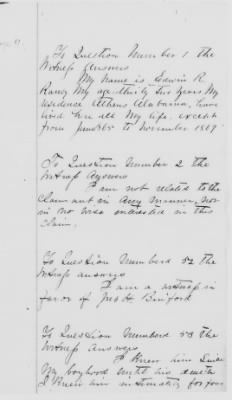 To Question Number 1 the
Witness answers
My name is Edwin R.
Raney My age thirty two years My
residence Athens Alabama, have
lived here all My life, except
from June 1865 to November 1869
To Question Number 2 the
Witness Answers
I am not related to the
Claimant in Any Manner, nor
in no wise interested in this
Claim.
To Question Numberd 52 the
Witness answers
I am a witness in
favor of Jno H. Binford
To Question Numberd 53 the
Witness Answers
I Knew him Since
My boyhood until his death
I Knew him intimately for four